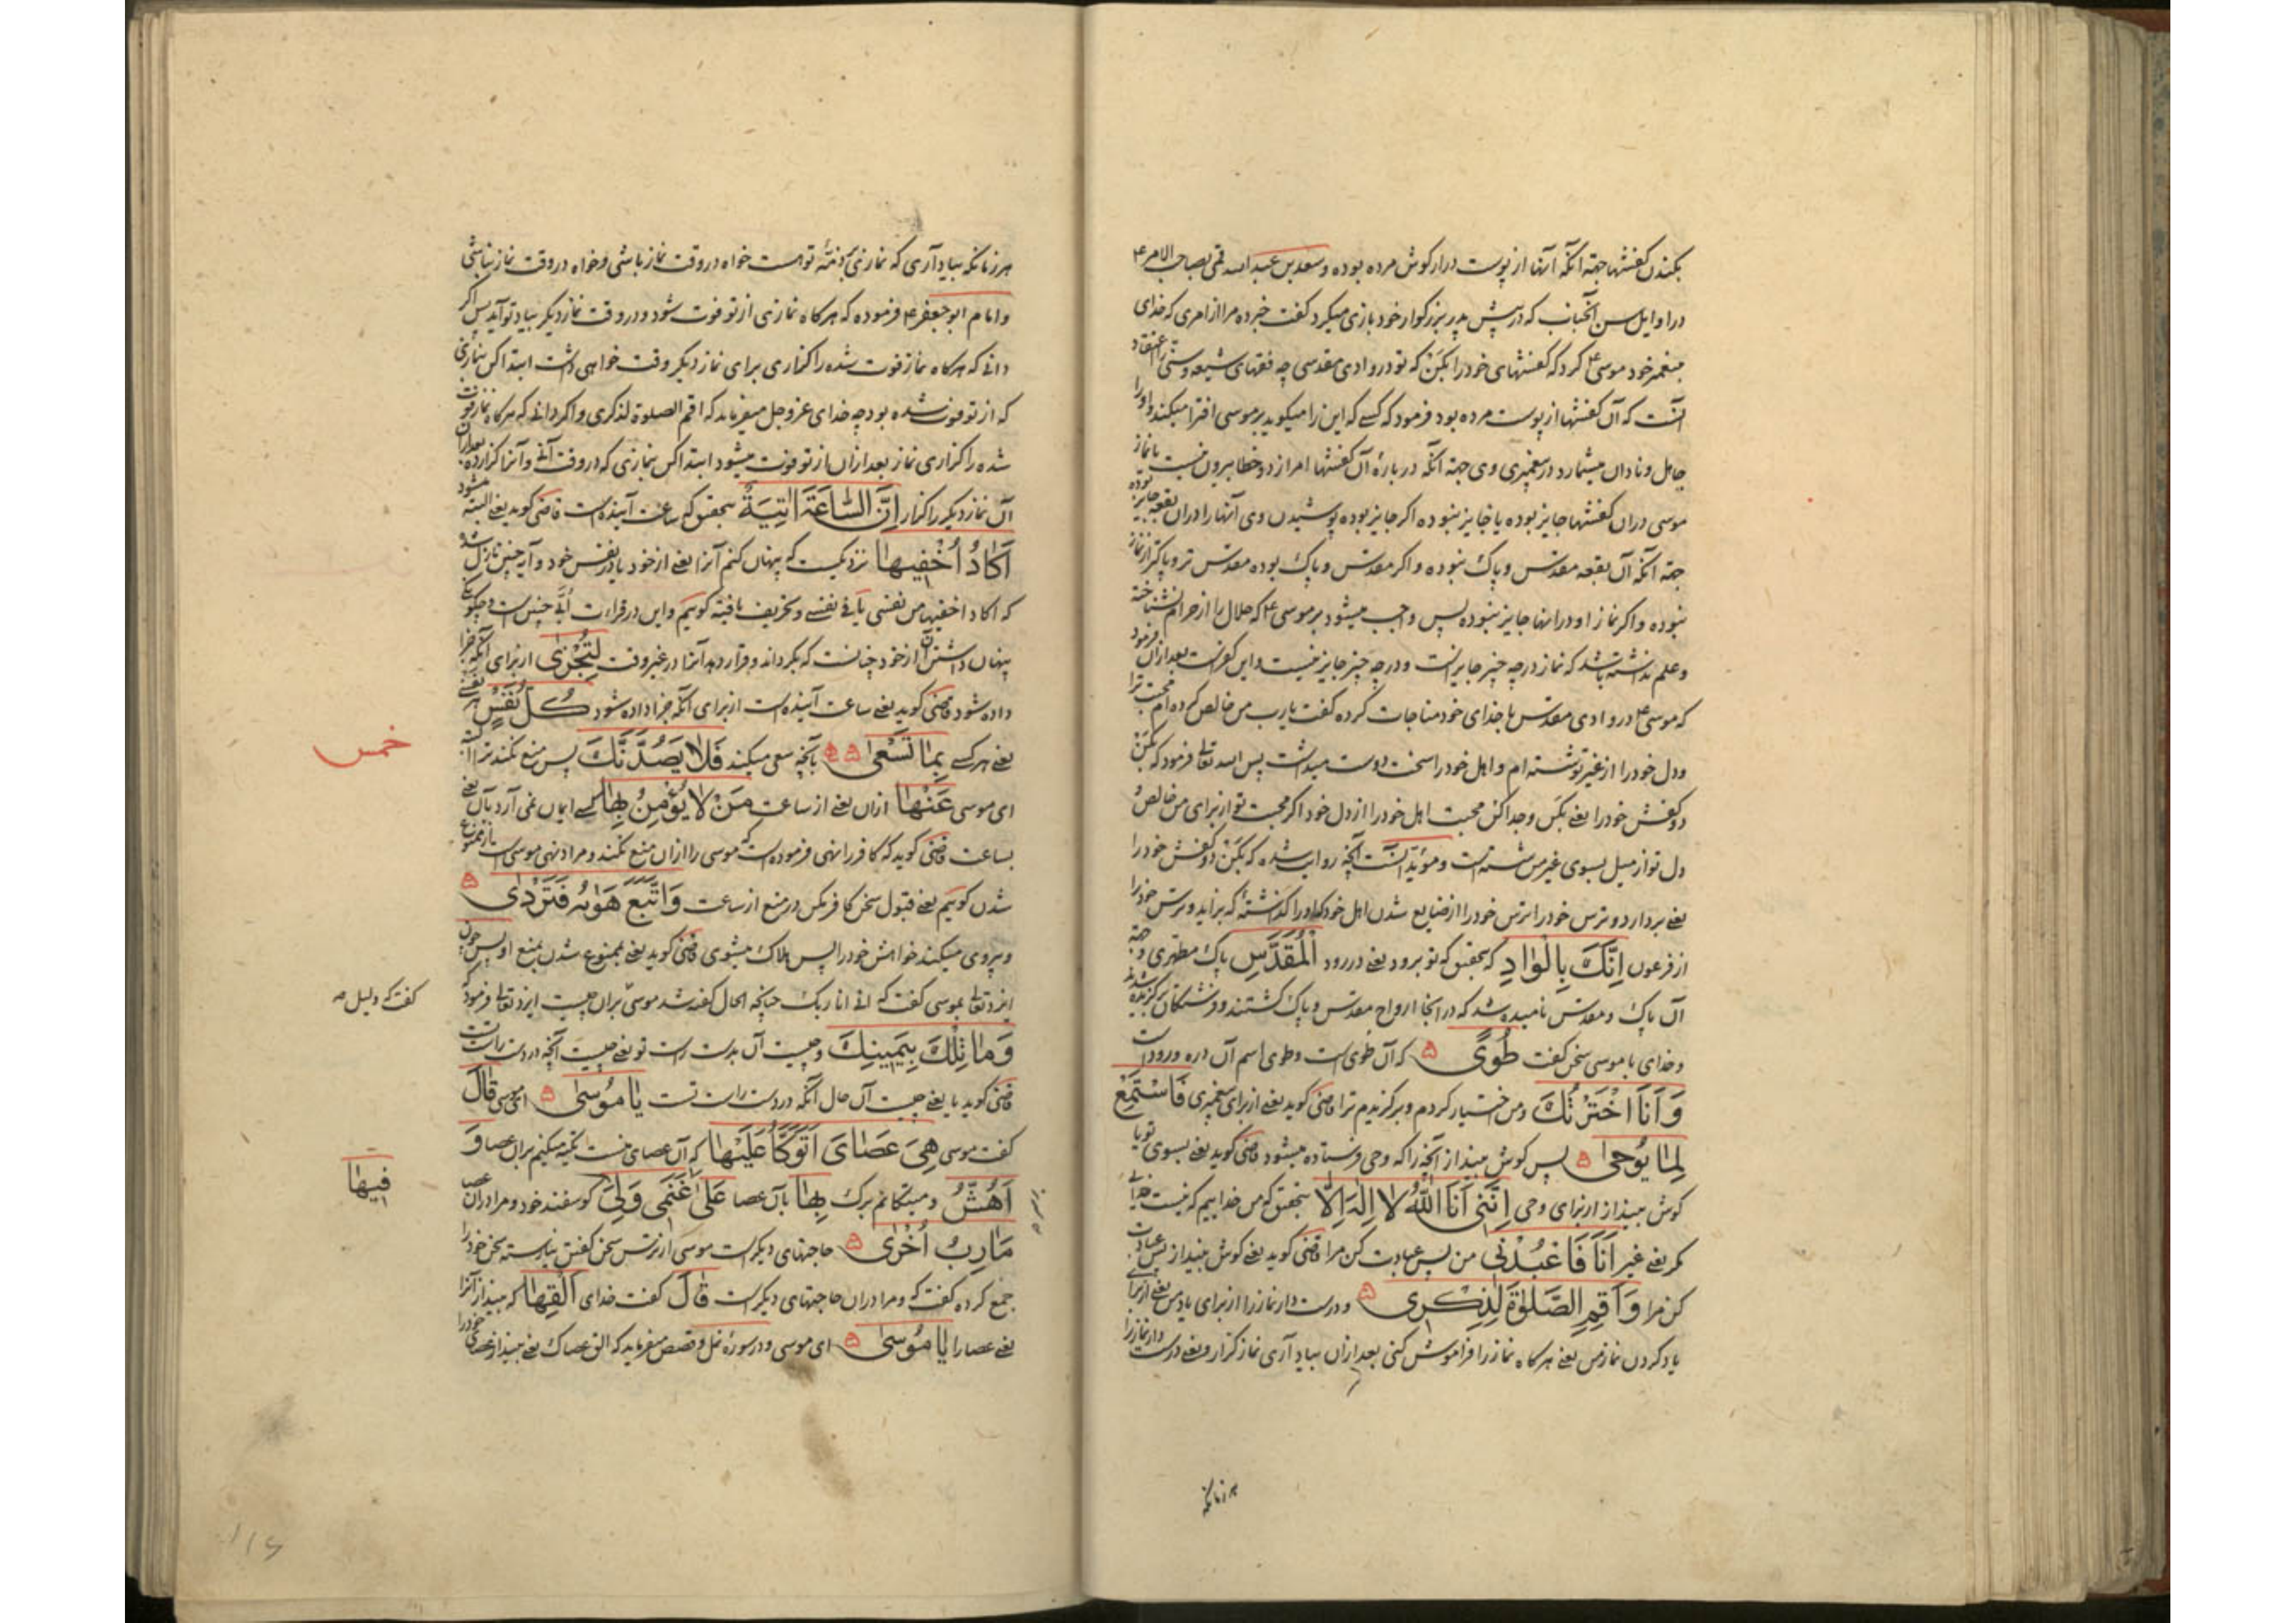 بکندن کفشها جهة آنکه آنها از پوست درازکوش مرده بوده و سعد بن عبد الله قمی بصاحب الامر ع
در اوایل سن آنجناب که در پیش پدر بزرکوار خود بازی میکرد کفت خبر ده مرا از امری که خدای
پیغمبر خود موسی ع کرد که کفشهای خود را بکن که تو در وادی مقدسی چه فقهای شیعه و سنی را اعتقاد
آنست که آن کفشها از پوست مرده بود فرمود که کسی که این را میکوید بر موسی افترا میکند و او را
جاهل و نادان میشمارد در پیغمبری وی جهة آنکه در بارهٔ آن کفشها امر از دو خطا بیرون نیست یا نماز
موسی در آن کفشها جایز بوده یا جایز نبوده اکر جایز بوده پوشیدن وی آنها را در آن بقعه جایز بوده
جهة آنکه آن بقعه مقدس و پاک نبوده و اکر مقدس و پاک بوده مقدس تر و پاکتر از نماز
نبوده و اکر نماز او در آنها جایز نبوده پس واجب میشود بر موسی ع که حلال را از حرام نشناخته
و علم نداشته باشد که نماز در چه چیز جایز است و در چه چیز جایز نیست و این کفر است بعد از آن فرمود
که موسی ع در وادی مقدس با خدای خود مناجات کرده کفت یا رب من خالص کرده ام محبت ترا
و دل خود را از غیر تو شسته ام و اهل خود را سخت دوست میداشت پس الله تعالی فرمود که بکن
دو کفش خود را یعنی بکن و جدا کن محبت اهل خود را از دل خود اکر محبت تو از برای من خالص و
دل تو از میل بسوی غیر من شسته است و مؤید آنست آنچه روایت شده که بکن دو کفش خود را
یعنی بردار دو ترس خود را ترس خود را از ضایع شدن اهل خود که او را کذاشتهٔ که بزاید و ترس خود را
از فرعون اِنَّكَ بِالْوَادِ که بتحقیق که تو برود یعنی در رود الْمُقَدَّسِ پاک مطهری و جهة
آن پاک و مقدس نامیده شد که در آنجا ارواح مقدس و پاک کشتند و فرشتکان برکزیده شدند
و خدای با موسی سخن کفت طُوًى که آن طوی است و طوی اسم آن دره و رود است
وَاَنَا اخْتَرْتُكَ و من اختیار کردم و برکزیدم ترا قاضی کوید یعنی از برای پیغمبری فَاسْتَمِعْ
لِمَا يُوحٰى پس کوش بینداز آنچه را که وحی فرستاده میشود قاضی کوید یعنی بسوی تو یا
کوش بینداز از برای وحی اِنَّنِي اَنَا اللّٰهُ لَا اِلٰهَ اِلَّا بتحقیق که من خداییم که نیست خدایی
مکر یعنی غیر اَنَا فَاعْبُدْنِي من پس عبادت کن مرا قاضی کوید یعنی کوش بینداز پس عبادت
کن مرا وَ اَقِمِ الصَّلٰوةَ لِذِكْرِي و درست دار نماز را از برای یاد من یعنی از برای
یاد کردن نماز من یعنی هر کاه نماز را فراموش کنی بعد از آن بیاد آری نماز کزار و یعنی درست دار نماز را
هر زمانکه
هر زمانکه بیاد آری که نمازی بر ذمّهٔ تو است خواه در وقت نماز باشی و خواه در وقت نماز نباشی
و امام ابو جعفر ع فرموده که هر کاه نمازی از تو فوت شود و در وقت نماز دیکر بیاد تو آید پس اکر
دانی که هر کاه نماز فوت شده را کذاری برای نماز دیکر وقت خواهی داشت ابتدا کن بنمازی
که از تو فوت شده بود چه خدای عز و جل میفرماید که اقم الصلوة لذکری و اکر دانی که هر کاه نماز فوت
شده را کزاری نماز بعد از آن از تو فوت میشود ابتدا کن بنمازی که در وقت آنی و آنرا کزارده بعد از آن
آن نماز دیکر را کزار اِنَّ السَّاعَةَ اٰتِيَةٌ بتحقیق که ساعت آینده است قاضی کوید یعنی البته میشود
اَكَادُ اُخْفِيهَا نزدیکست که پنهان کنم آنرا یعنی از خود یا در نفس خود و آیه چنین نازل شد
که اکاد اخفیها من نفسی یا فی نفسی و تحریف یافته کوییم و این در قراءت اُبی چنین است
پنهان داشتن آن از خود چنانست که بکرداند و قرار دهد آنرا در غیر وقت لِتُجْزٰى از برای آنکه جزا
داده شود قاضی کوید یعنی ساعت آینده است از برای آنکه جزا داده شود كُلُّ نَفْسٍ هر نفسی
یعنی هر کسی بِمَا تَسْعٰى بآنچه سعی میکند فَلَا يَصُدَّنَّكَ پس منع نکند ترا
خمس
ای موسی عَنْهَا از آن یعنی از ساعت مَنْ لَا يُؤْمِنُ بِهَا کسی ایمان نمی آرد بآن یعنی
بساعت قاضی کوید که کافر را نهی فرموده است که موسی را از آن منع نکند و مراد نهی موسی است از ممنوع
شدن کوییم یعنی قبول سخن کافر مکن در منع از ساعت وَاتَّبَعَ هَوٰيهُ فَتَرْدٰى
و پیروی میکند خواهش خود را پس هلاک میشوی قاضی کوید یعنی بممنوع شدن بمنع او پس چون
ایزد تعالی بموسی کفت که انی انا ربک چنانچه الحال کفته شد موسی برآن چیست ایزد تعالی فرمود که
کفت که دلیل
وَمَا تِلْكَ بِيَمِينِكَ و چیست آن بدست راست تو یعنی چیست آنچه در دست راست تست
قاضی کوید یا یعنی چیست آن حال آنکه در دست راست تست يَا مُوسٰى ای موسی قَالَ
کفت موسی هِيَ عَصَايَ اَتَوَكَّؤُا عَلَيْهَا که آن عصای منست تکیه میکنم بر آن عصا وَ
اَهُشُّ و میتکانم برک بِهَا بآن عصا عَلٰى غَنَمِي وَلِيَ کوسفند خود و مرا در آن عصا
فِيهَا
مَاٰرِبُ اُخْرٰى حاجتهای دیکرست موسی از ترس سخن کفتن نیارسته سخن خود را
جمع کرده کفت که و مرا در آن حاجتهای دیکرست قَالَ کفت خدای اَلْقِهَا که بینداز آنرا
یعنی عصا را يَا مُوسٰى ای موسی و در سورهٔ نمل و قصص میفرماید که الق عصاک یعنی بینداز عصای خود را